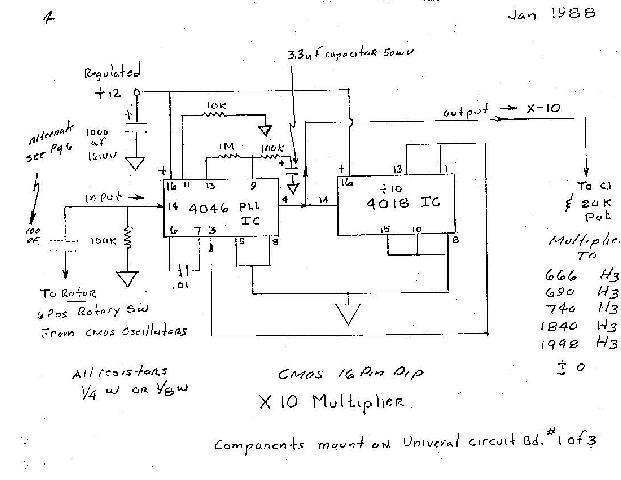 4
Jan 1988
3.3uf capacitor 50wv
Regulated
+12
10K
output → X-10
Alternate
see Pg 6
1000
uf
15WV
+
1M
100K
+
+
16 11 13 9
+
16 13 1
Input →
14 4046 PLL
IC
4
14
÷10
4018 IC
To C1
& 20K
Pot
100
PF
100K
6 7 3 5 8
15 10 8
.01
Multiplier
TO
666 H3
690 H3
740 H3
1840 H3
1998 H3
± 0
To Rotor
6 Pos Rotary SW
From CMOS Oscillators
All resistors
1/4 W OR 1/8 W
CMOS 16 Pin Dip
X 10 Multiplier
Components mount on Univeral circuit Bd. #1 of 3